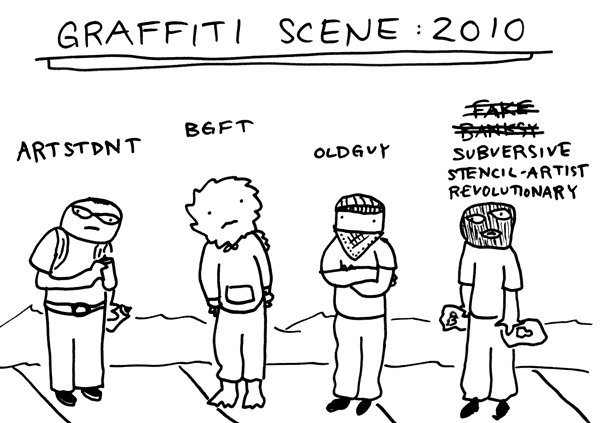 GRAFFITI SCENE: 2010
ARTSTDNT
BGFT
OLDGUY
FAKE
BANKSY
SUBVERSIVE
STENCIL-ARTIST
REVOLUTIONARY